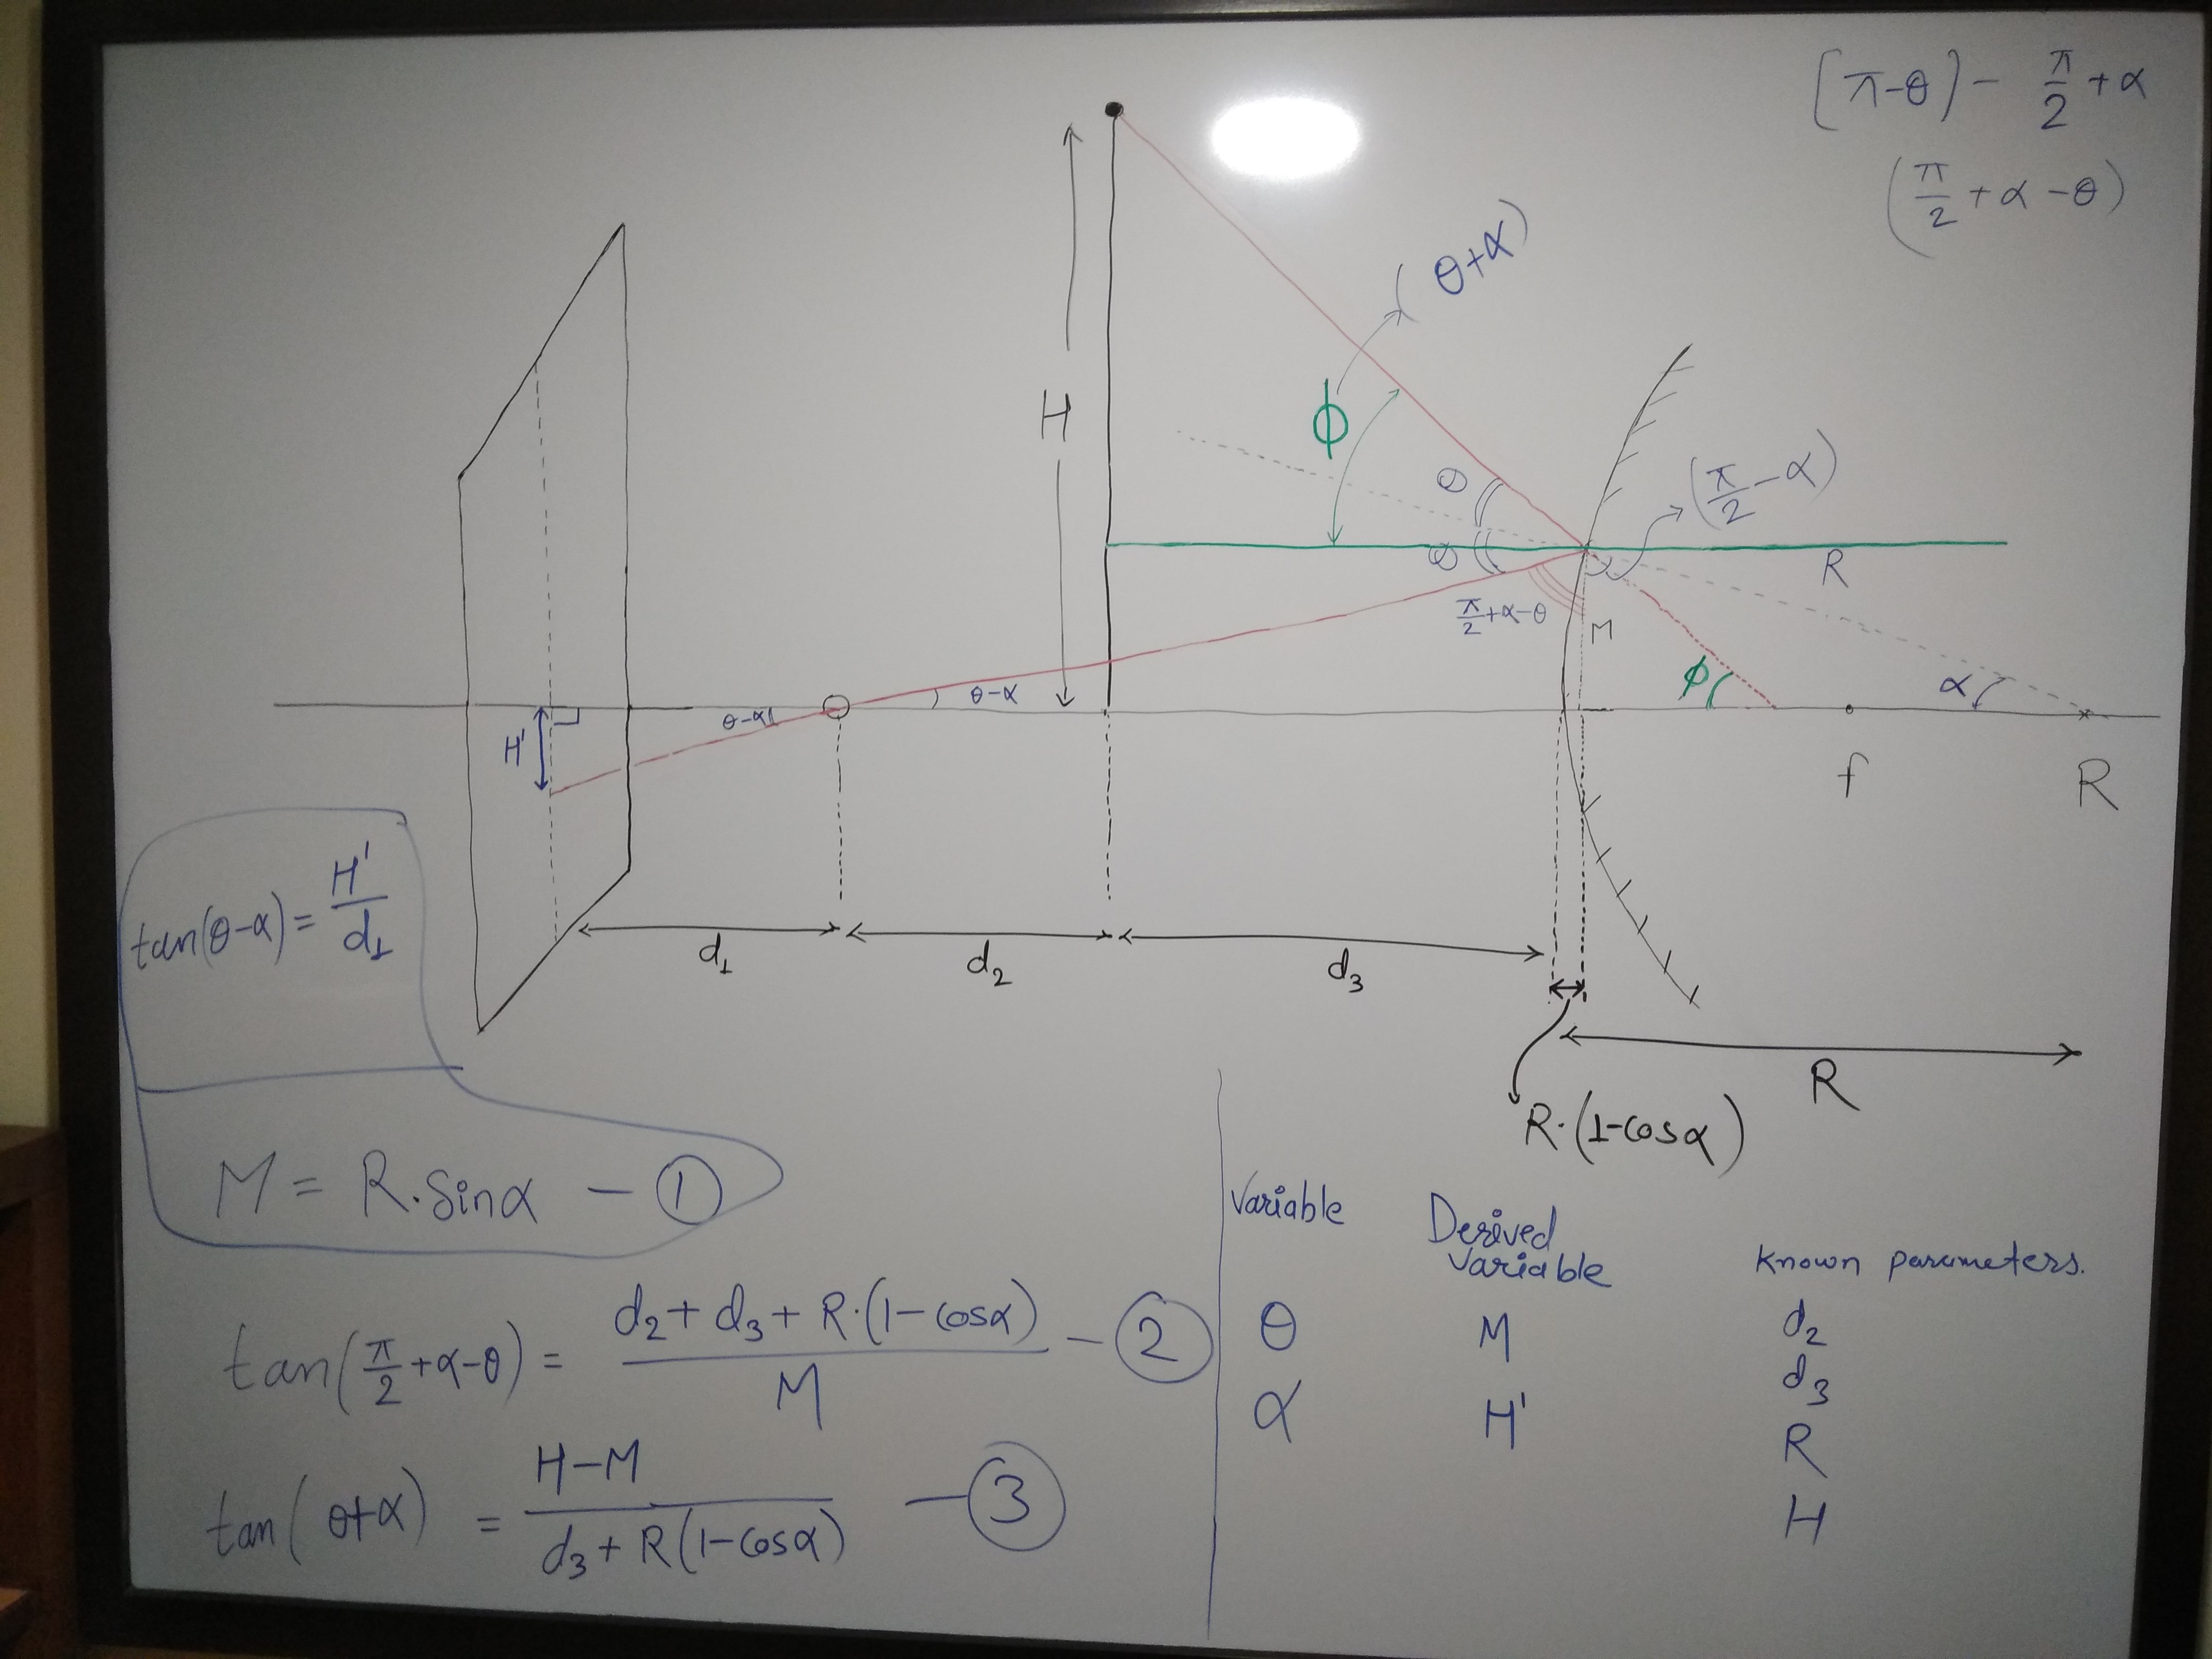 [π-θ) - π/2 + α
(π/2 + α - θ)
(θ+α)
H
ϕ
θ
(π/2 - α)
θ
R
π/2+α-θ
M
ϕ
α
θ-α
θ-α
H'
f
R
tan(θ-α) = H'/d1
d1
d2
d3
R
R·(1-cosα)
M = R·Sinα - ①
tan(π/2+α-θ) = (d2+d3+R·(1-cosα))/M - ②
tan(θ+α) = (H-M)/(d3+R(1-cosα)) - ③
Variable
Derived Variable
Known parameters.
θ M d2
d3
α H' R
H